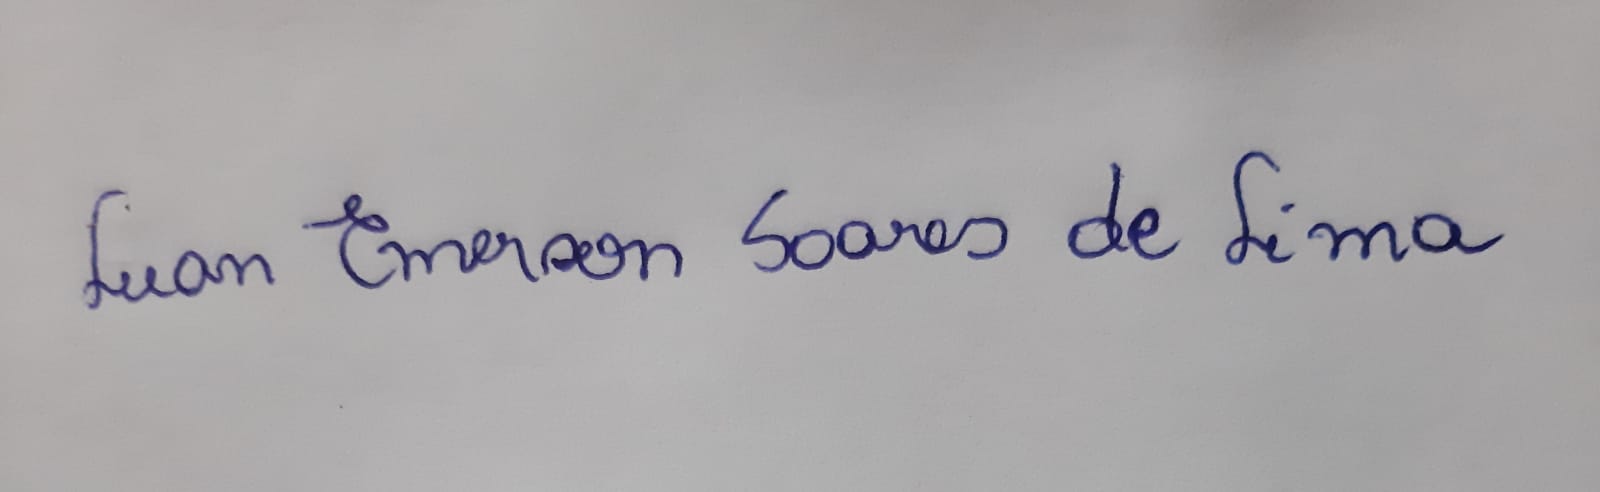 Luan Emerson Soares de Lima